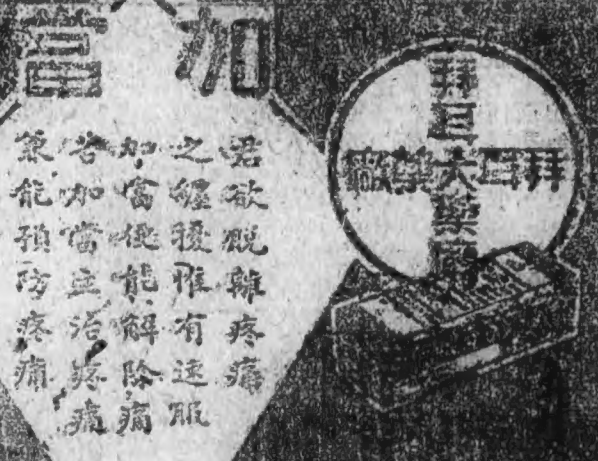 加當
君欲脫離疼痛
之纏擾惟有速服
加當便能解除痛
苦加當立治疼痛
兼能預防疼痛
拜耳大藥廠
拜耳大藥廠